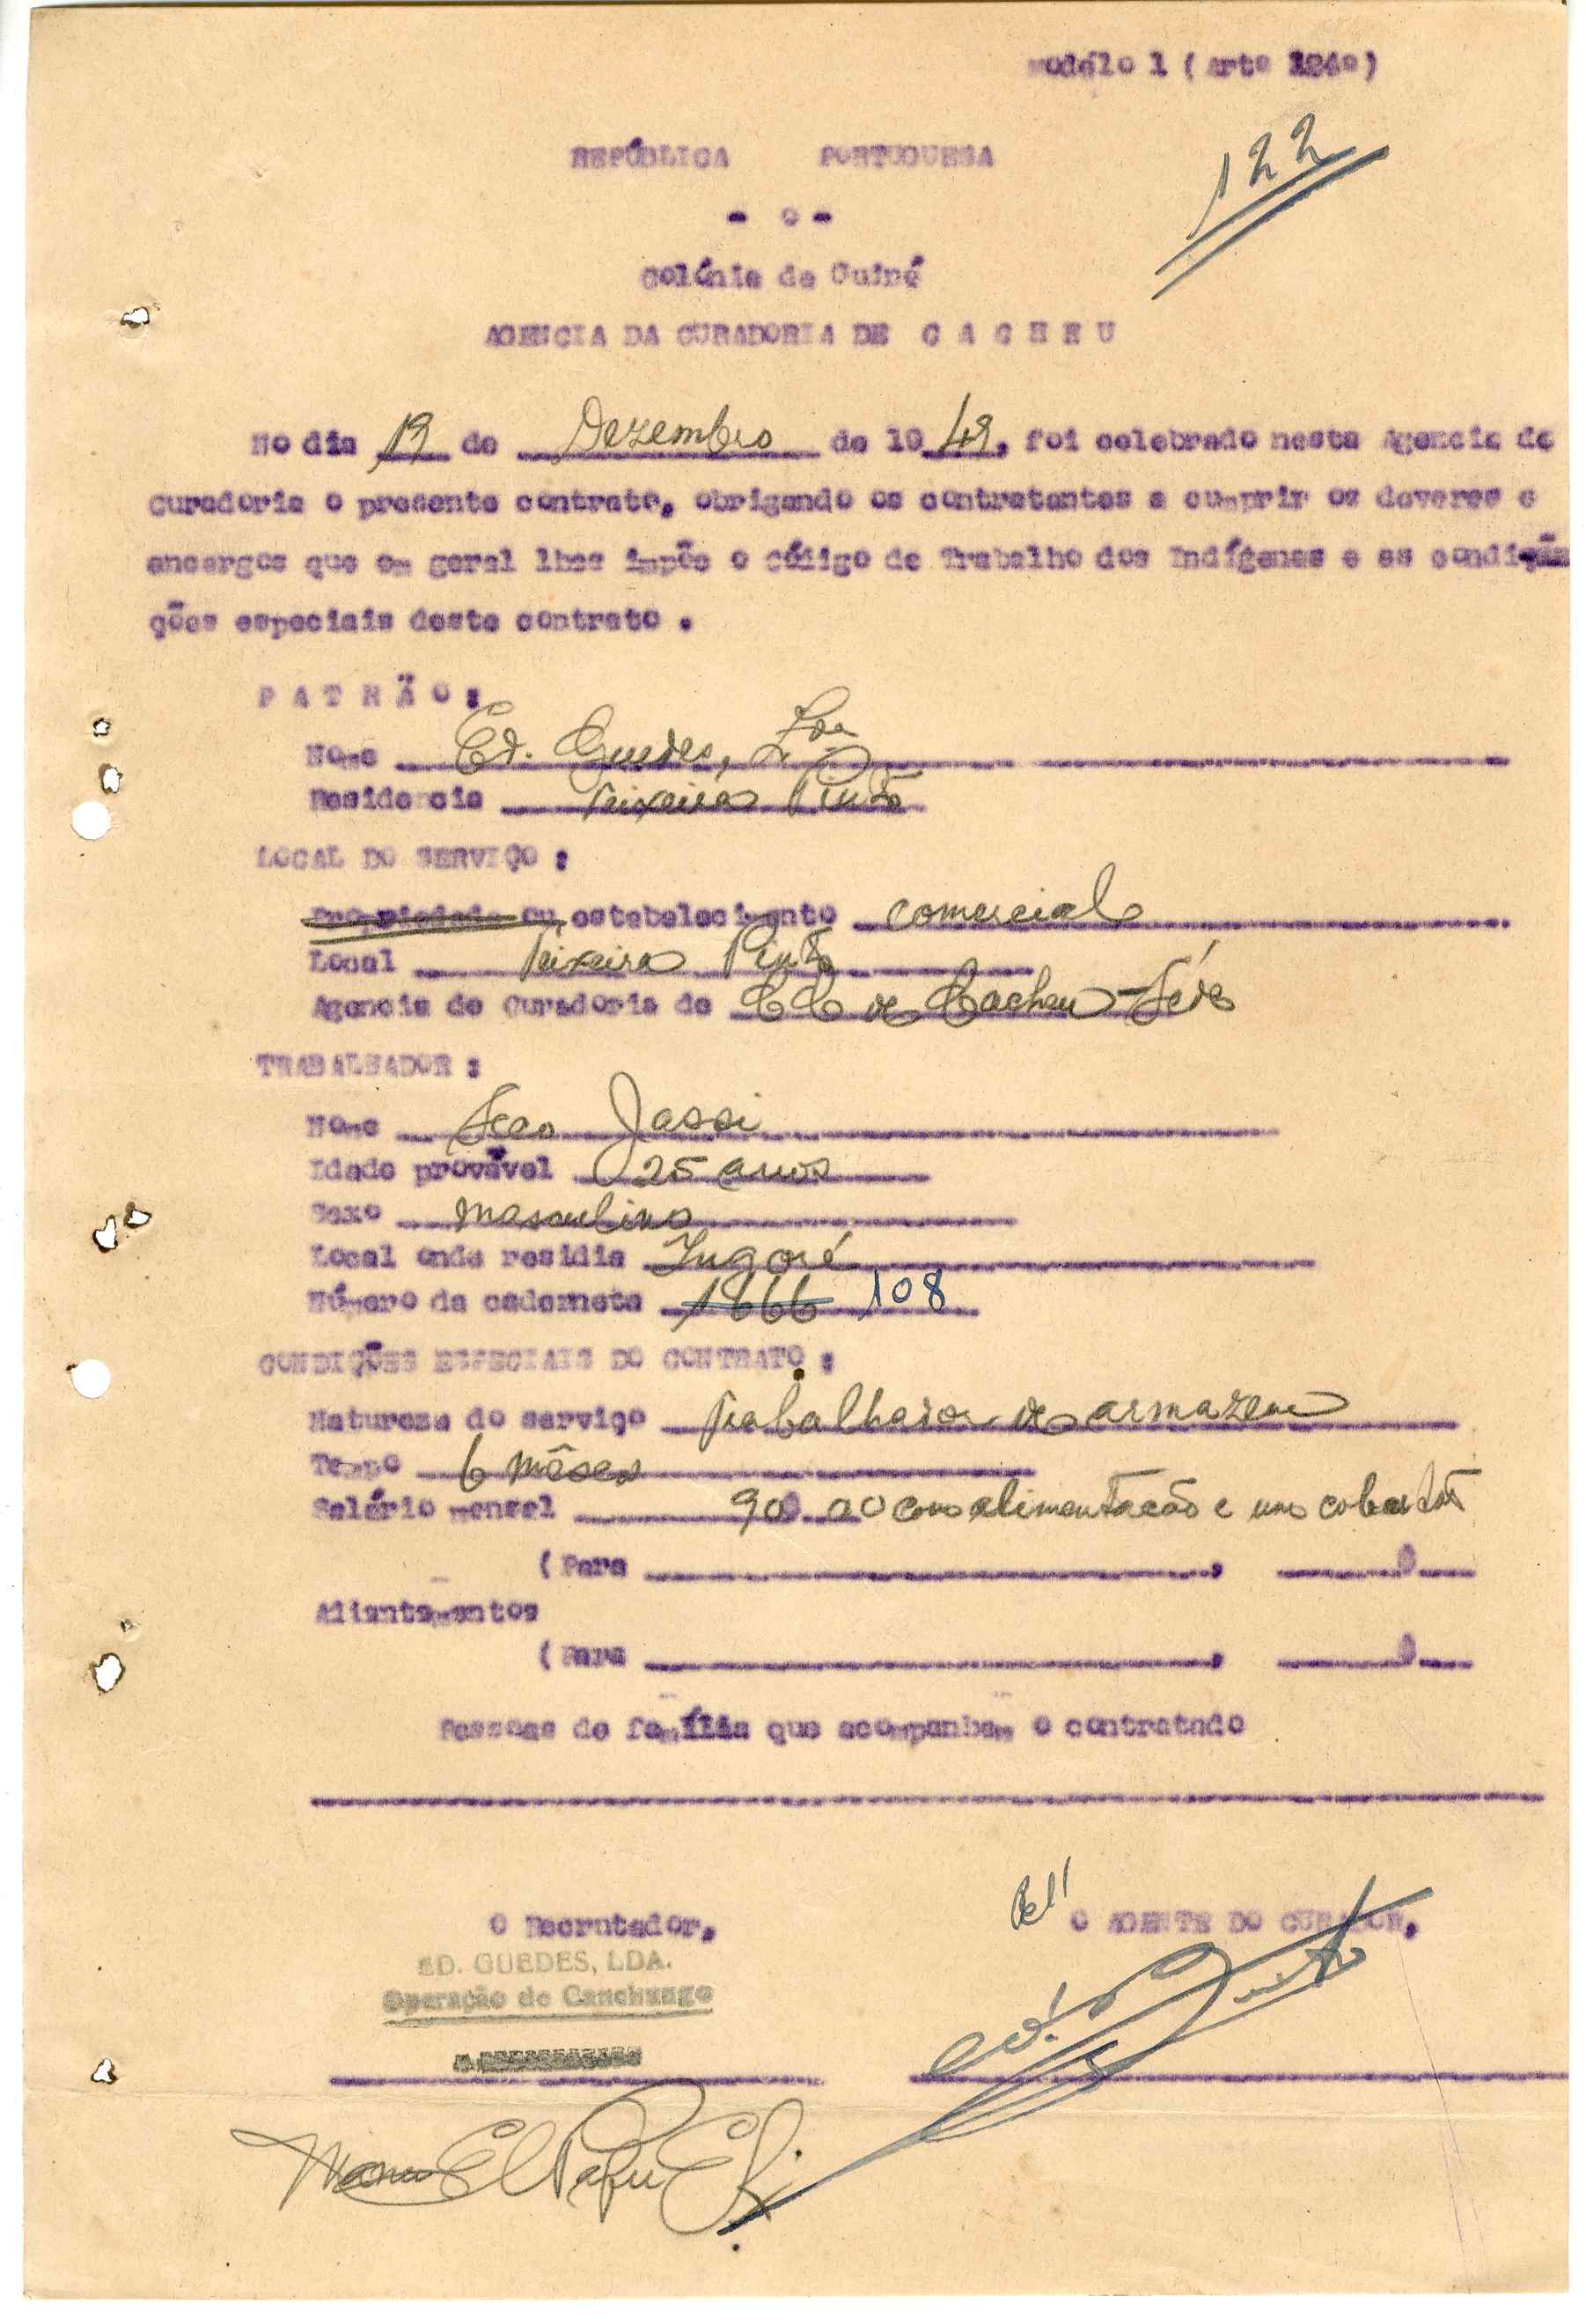 Modélo 1 (Artº 124º)
122
REPÚBLICA PORTUGUESA
- o -
Colónia da Guiné
AGENCIA DA CURADORIA DE C A C H E U
No dia 19 de Dezembro de 19 49, foi celebrado nesta Agencia da
Curadoria o presente contrato, obrigando os contratantes a cumprir os deveres e
encargos que em geral lhes impõe o Código de Trabalho dos Indígenas e as condi
ções especiais deste contrato .
P A T R Ã O :
Nome Ed. Guedes, Lda
Residencia Teixeira Pinto
LOCAL DO SERVIÇO :
Propriedade ou estabelecimento comercial
Local Teixeira Pinto
Agencia de Curadoria de CC de Cacheu-Séde
TRABALHADOR :
Nome Jassi
Idade provável 25 anos
Sexo masculino
Local onde residia Ingoré
Número da caderneta 1666 108
CONDIÇÕES ESPECIAIS DO CONTRATO :
Natureza do serviço Trabalhador de armazem
Tempo 6 mêses
Salário mensal 90$00 com alimentação e um
(Para , $
Adiantamentos
(Para , $
Pessoas de família que acompanham o contratado
O Recrutador,
Pel'
O AGENTE DO CURADOR,
ED. GUEDES, LDA.
Operação de Canchungo